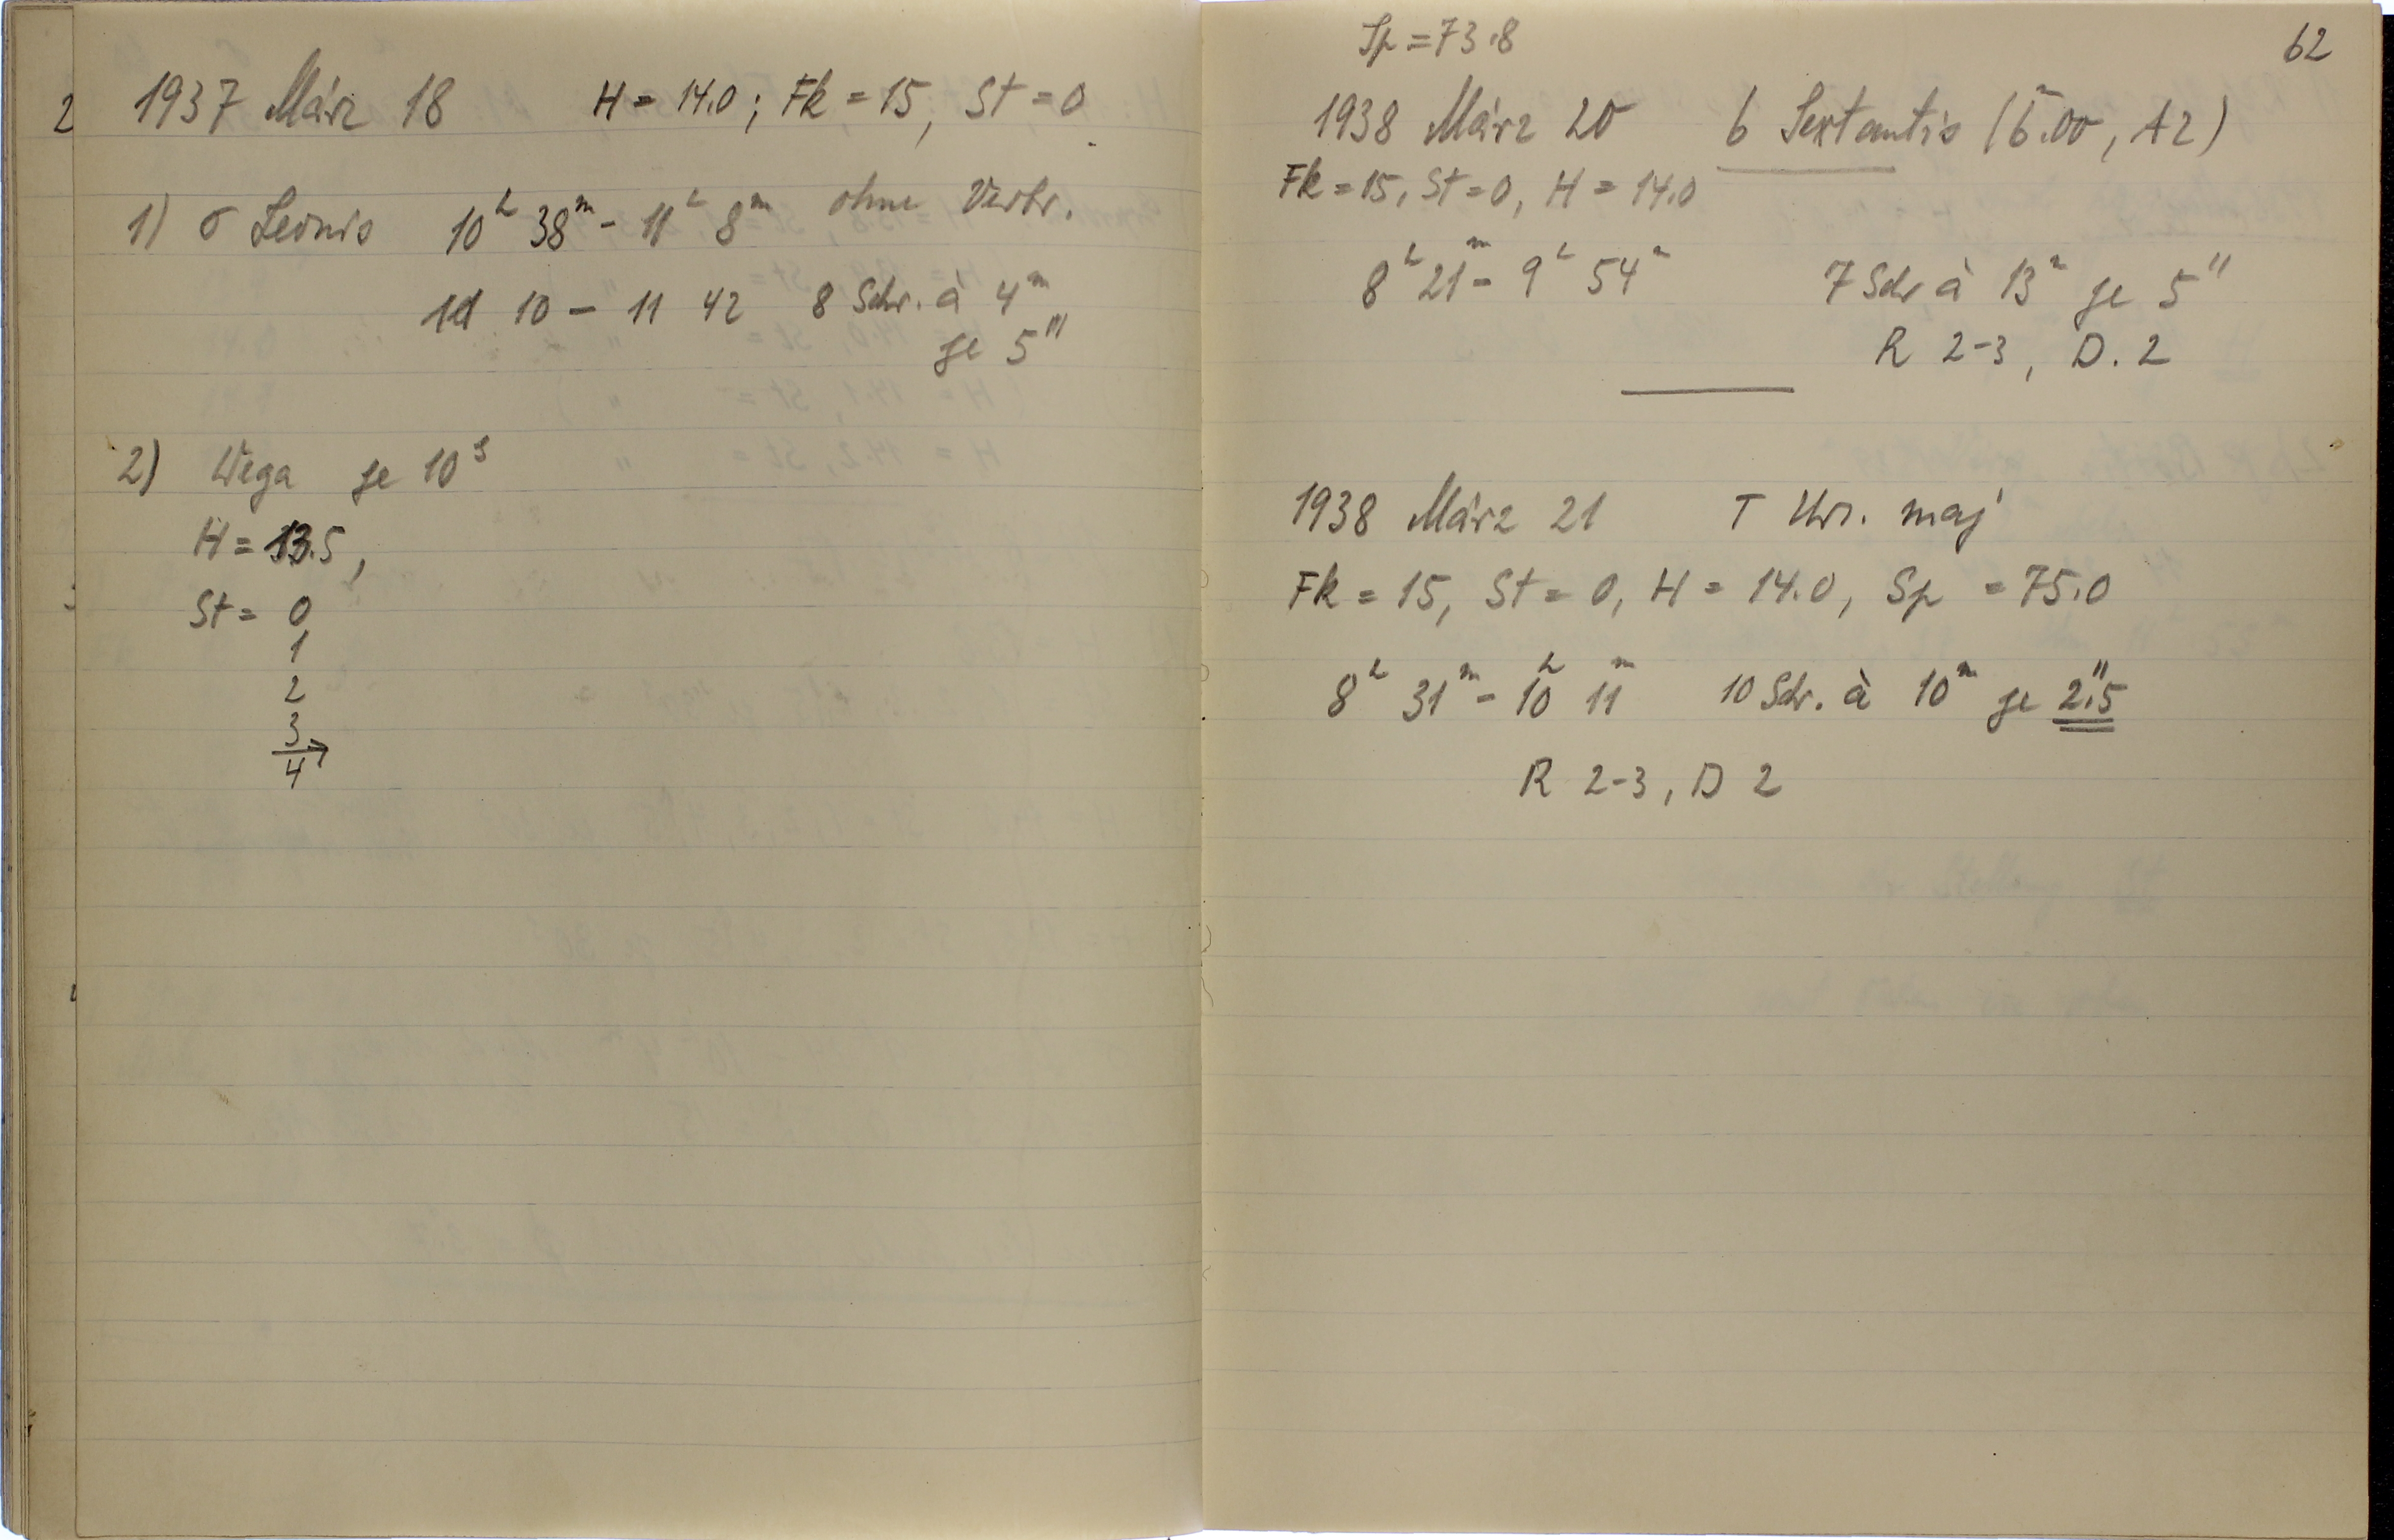 1937 März 18 H = 14.0; Fk = 15, St = 0
1) σ Leonis 10ʰ 38ᵐ - 11ʰ 8ᵐ ohne Verbr.
11 10 - 11 42 8 Schr. à 4ᵐ
je 5'''
2) Wega je 10ˢ
H = 13.5,
St = 0
1
2
3
4
62
Sp = 73.8
1938 März 20 6 Sextantis (6ᵐ.00, A2)
Fk = 15, St = 0, H = 14.0
8ʰ 21ᵐ - 9ʰ 54ᵐ 7 Schr à 13ᵐ je 5''
R 2-3, D. 2
1938 März 21 T Urs. maj
Fk = 15, St = 0, H = 14.0, Sp = 75.0
8ʰ 31ᵐ - 10ʰ 11ᵐ 10 Schr. à 10ᵐ je 2''.5
R 2-3, D 2